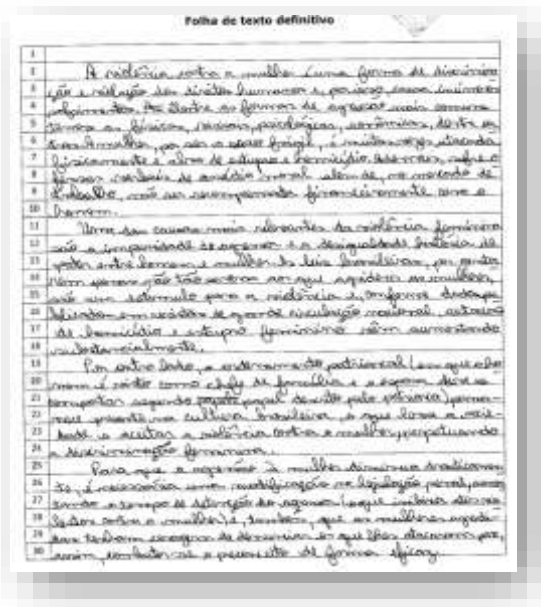 Folha de texto definitivo
1
2 A violência contra a mulher é uma forma de discrimina-
3 ção e violação dos direitos humanos e, por isso, causa inúmeros
4 sofrimentos. Dentre as formas de agressão mais comuns
5 temos as físicas, sexuais, psicológicas, econômicas, dentre ou
6 tras. A mulher, por ser o sexo frágil, é muitas vezes atacada
7 fisicamente e alvo de estupro e homicídio. Ademais, sofre o
8 verbais de assédio moral além de, no mercado de
9 trabalho, não ser recompensada financeiramente como o
10 homem.
11 Uma das causas mais relevantes da violência feminina
12 são a impunidade do agressor e a desigualdade histórica de
13 poder entre homem e mulher. As leis brasileiras, por
14 penas tão aos que agridem as mulheres,
15 são um estímulo para a violência e, conforme dados pu
16 blicados em de grande circulação nacional, os casos
17 de homicídio e estupro feminino vêm aumentando
18 substancialmente.
19 Por outro lado, o ordenamento patriarcal (em que o ho
20 mem é visto como chefe de família e a esposa deve se
21 comportar segundo papel descrito pelo ) perma-
22 nece presente na cultura brasileira, o que leva a socie-
23 dade a aceitar a violência contra a mulher, perpetuando
24 a discriminação feminina.
25 Para que a agressão à mulher diminua drasticamen
26 te, é necessária uma modificação na legislação penal, aumen
27 tando o tempo de detenção do agressor (
28 contra a mulher) e, também, que as mulheres agredi
29 das tenham coragem de denunciar os que lhes atacaram para,
30 assim, combater-se o preconceito de forma eficaz.